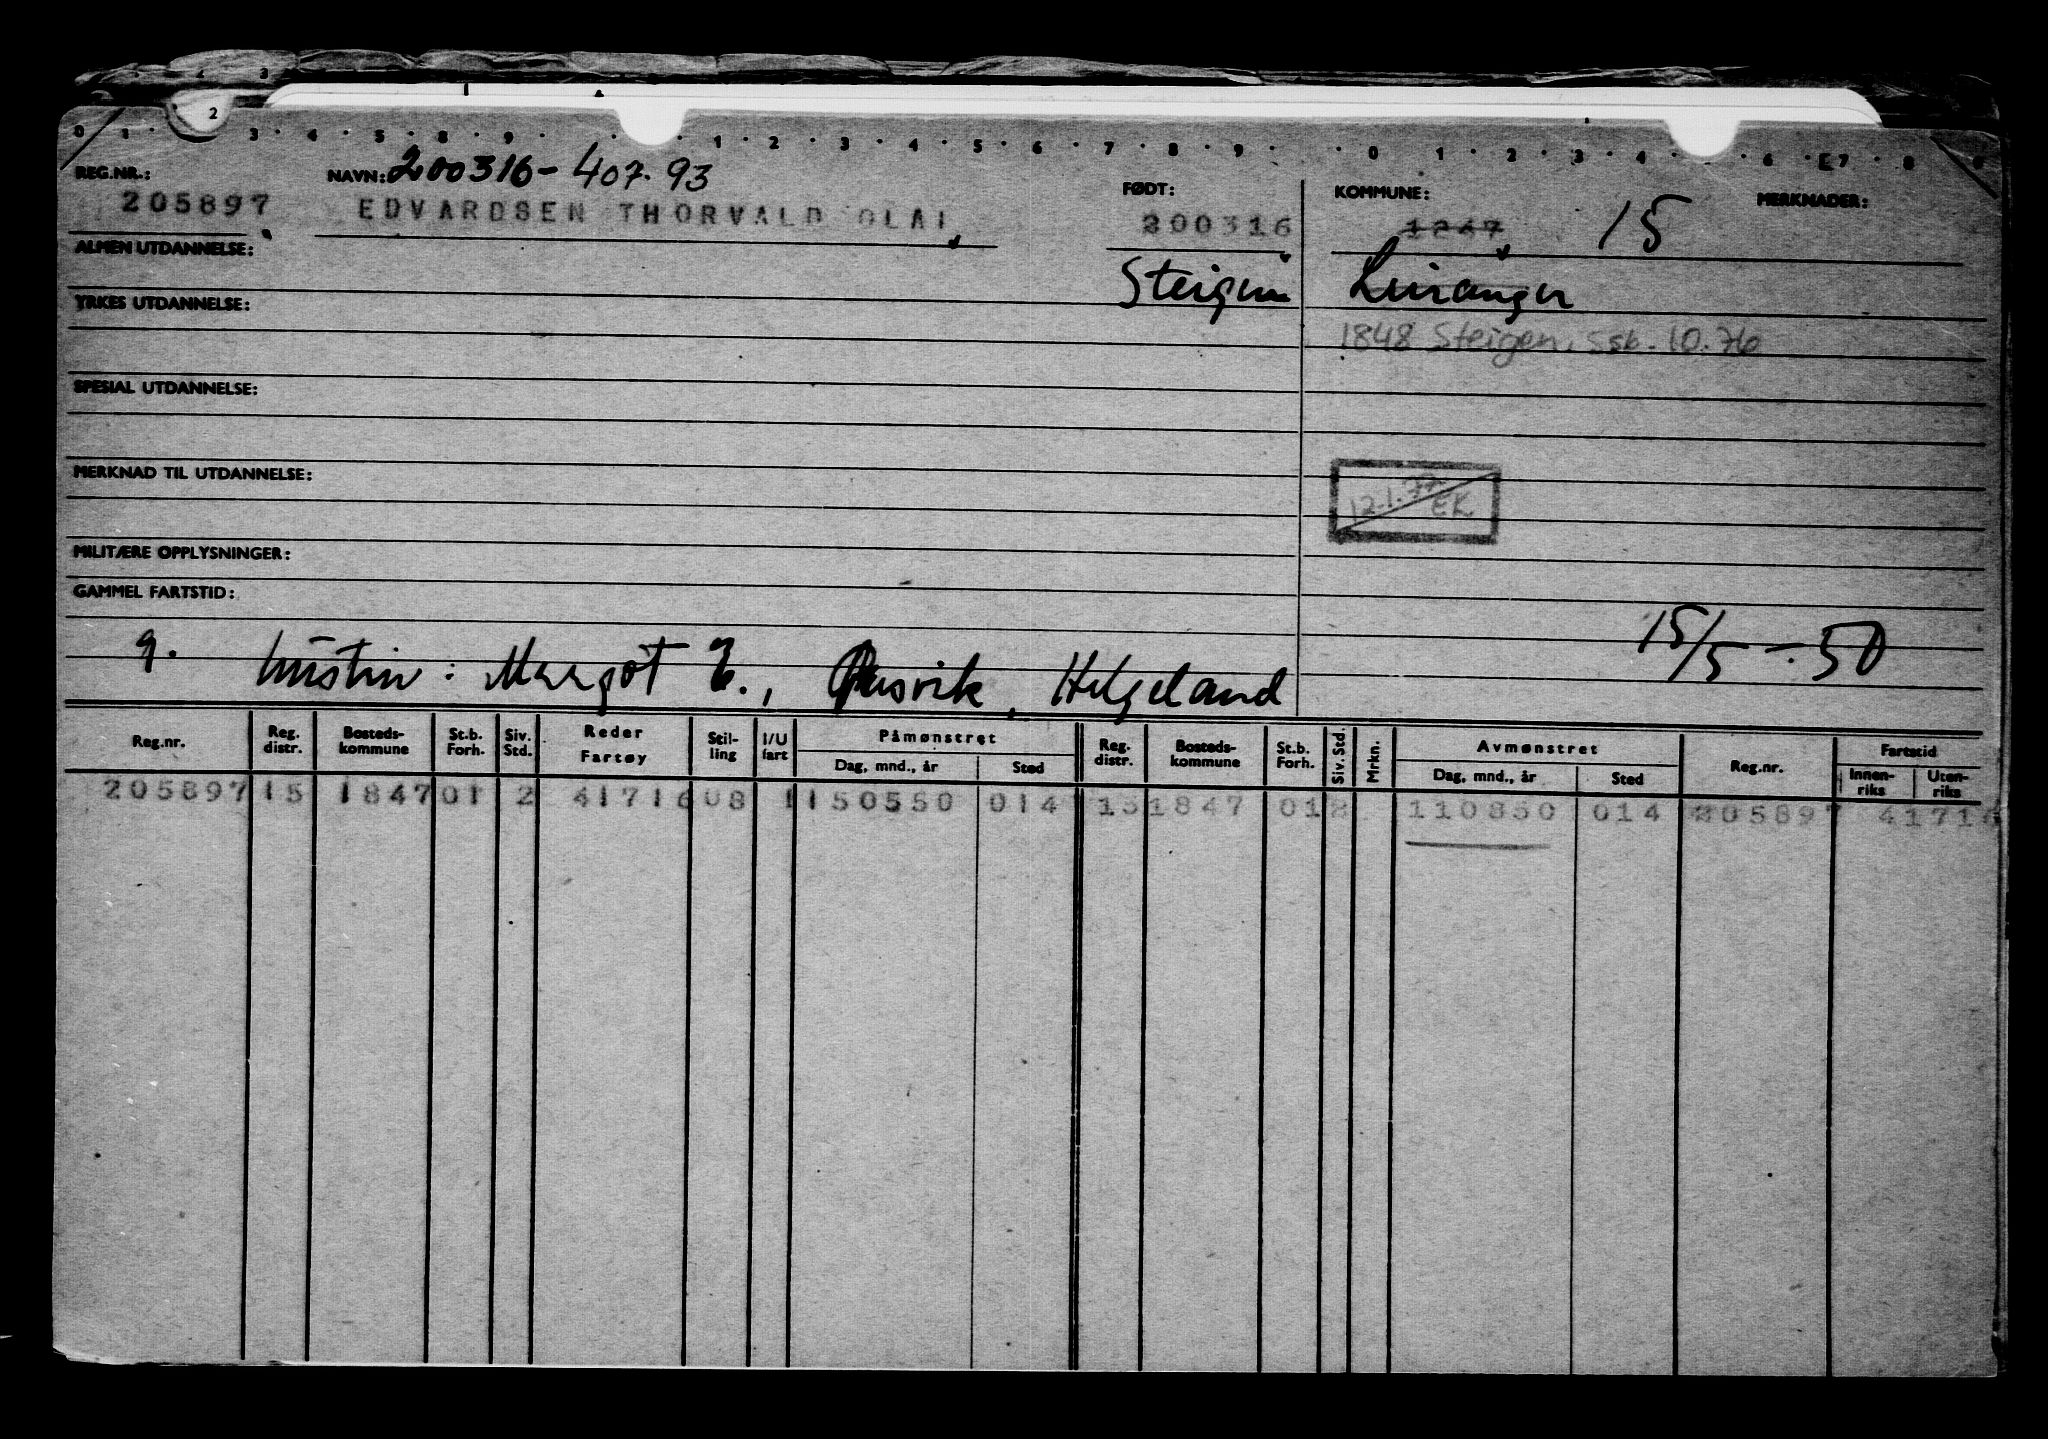 0 1 2 3 4 5 8 9 1 2 3 4 5 6 7 8 9 0 1 2 3 4 6 E7 8 9
REG.NR.: NAVN: 200316-407.93 FØDT: KOMMUNE: MERKNADER:
205897 EDVARDSEN THORVALD OLAI 200316 1247 15
ALMEN UTDANNELSE: Steigen Leiranger
YRKES UTDANNELSE: 1848 Steigen, Ssk. 10.76
SPESIAL UTDANNELSE:
MERKNAD TIL UTDANNELSE: 12.1.77 EK
MILITÆRE OPPLYSNINGER:
GAMMEL FARTSTID:
g. hustru: Margot E., Husvik, Helgeland 15/5-50
Reg.nr. Reg. distr. Bosteds-kommune St.b. Forh. Siv. Std. Reder Fartøy Stil-ling I/U fart Påmønstret Reg. distr. Bosteds-kommune St.b. Forh. Siv. Std. Mrkn. Avmønstret Reg.nr. Fartstid
Dag, mnd., år Sted Dag, mnd., år Sted Innen-riks Uten-riks
205897 15 1847 01 2 41716 08 1 150550 014 15 1847 01 2 110850 014 205897 41716